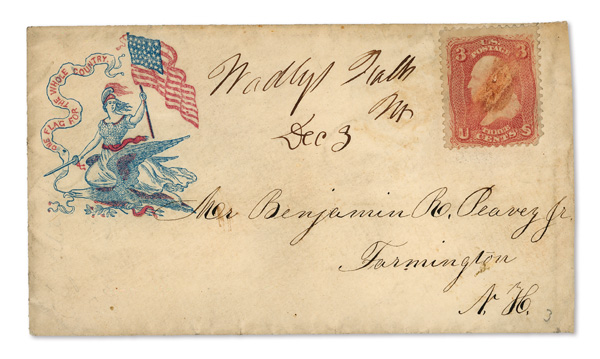 ONE FLAG FOR THE WHOLE COUNTRY.
Wadlys Falls
Dec 3
3 U.S. 3
POSTAGE
U THREE S
CENTS
Mr Benjamin R. Peavey Jr.
Farmington
N. H.
3